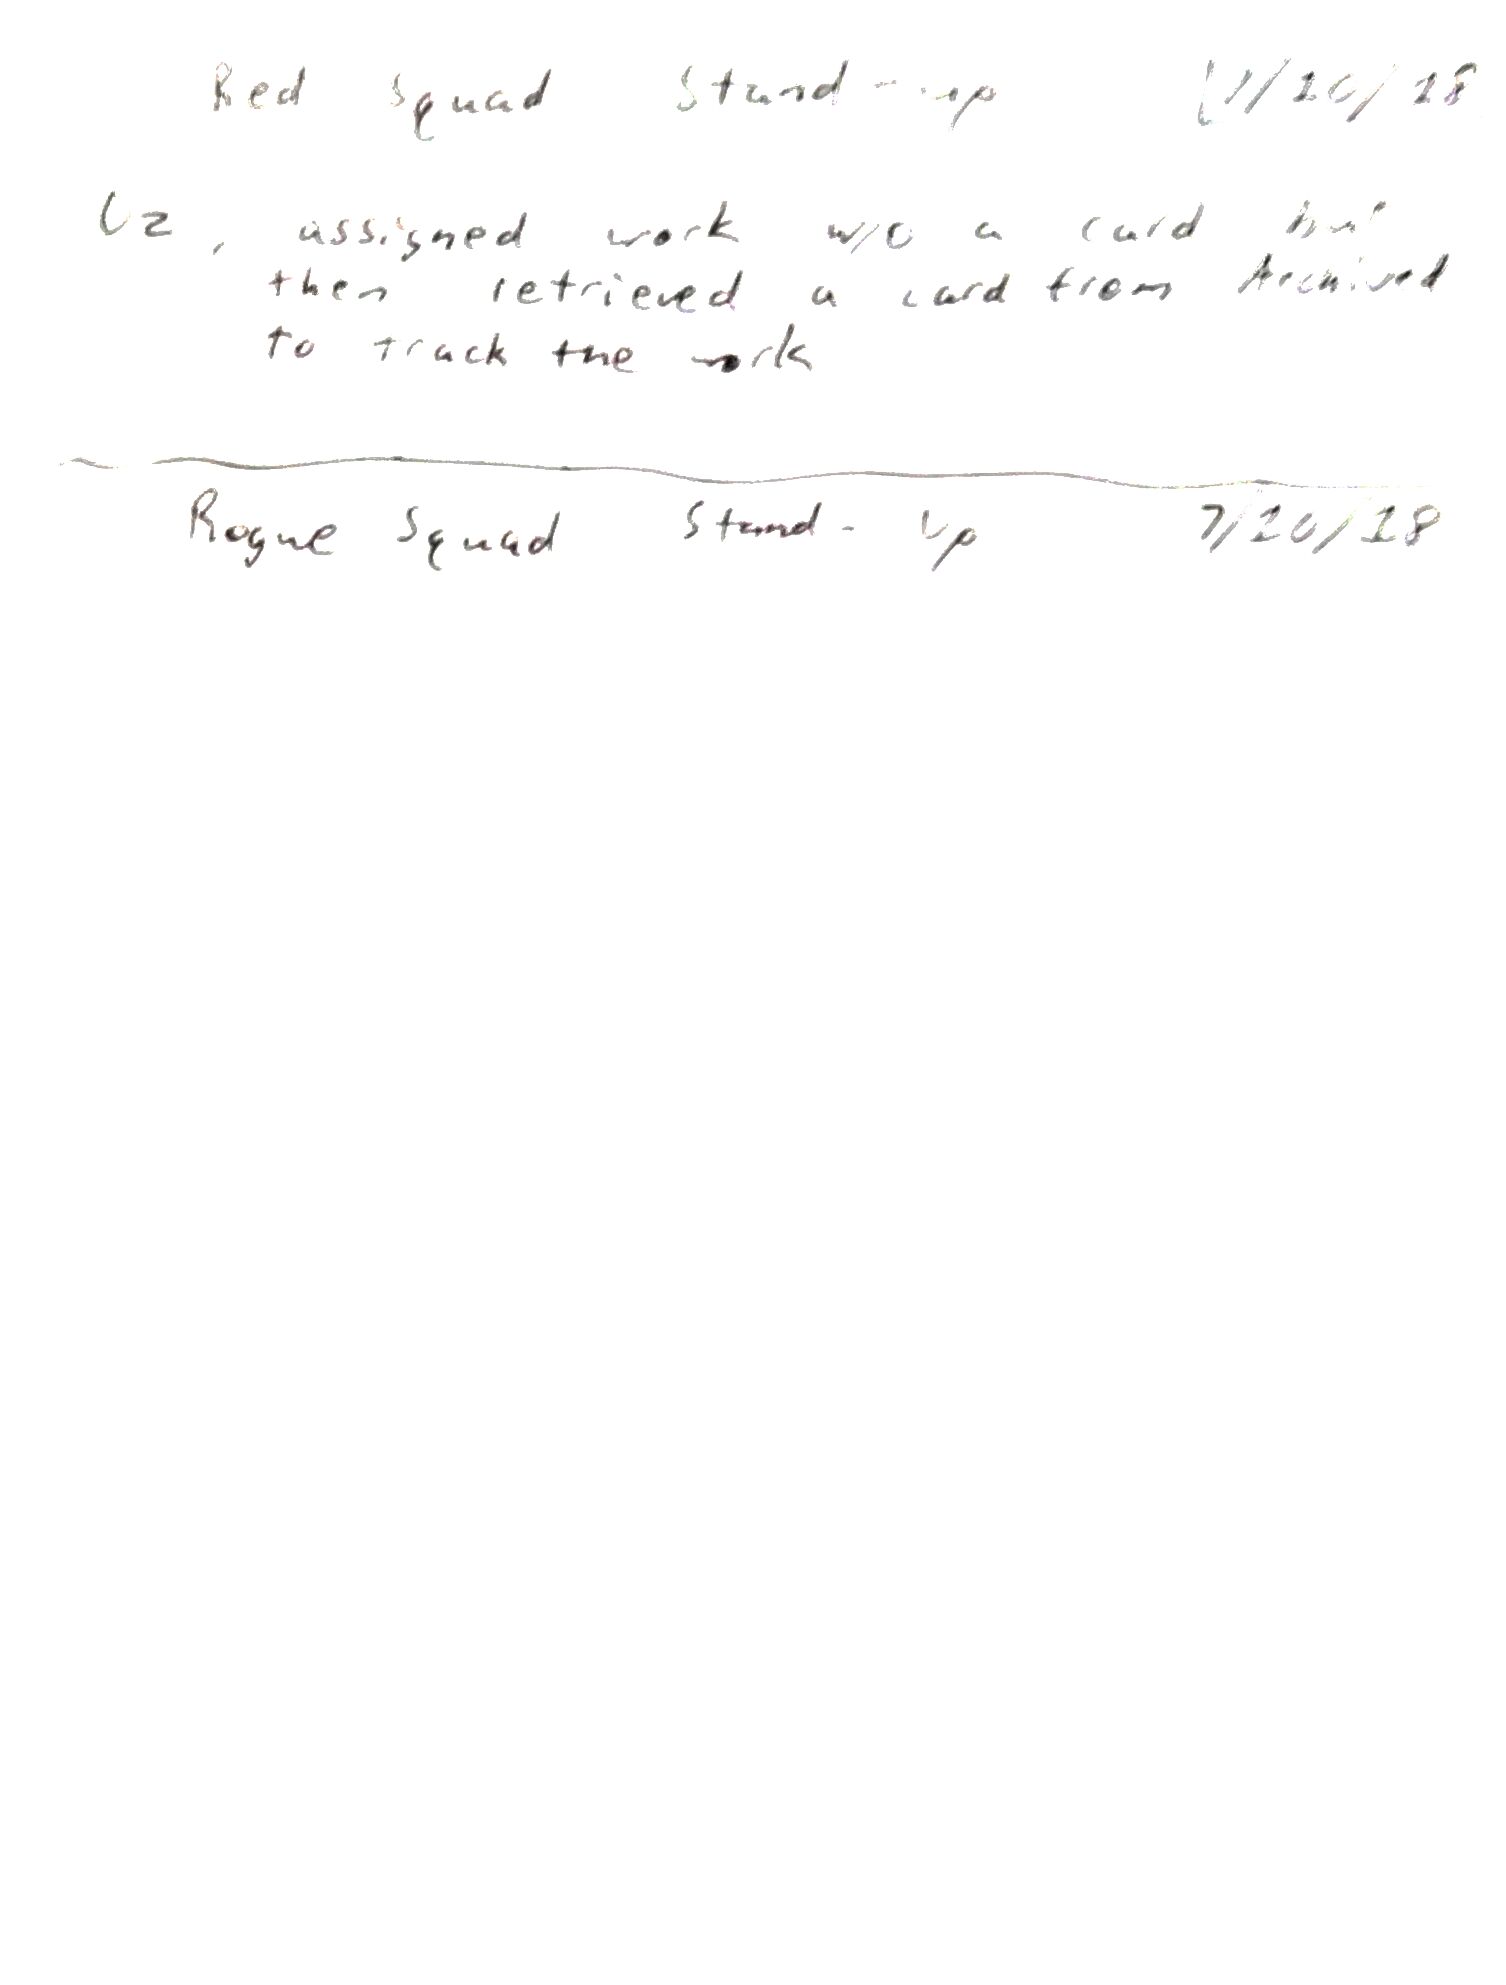 Red Squad Stand-up 7/20/18
Uz, assigned work w/o a card but
then retrieved a card from Archived
to track the work
Rogue Squad Stand-Up 7/20/18